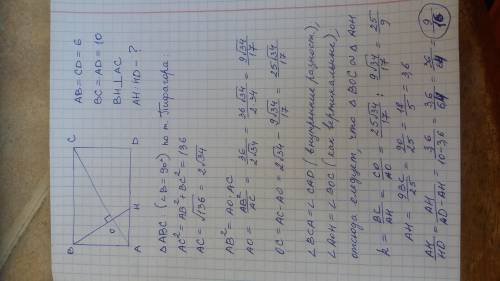 B
C
O
A
H
D
AB = CD = 6
BC = AD = 10
BH ⊥ AC
AH : HD - ?
Δ ABC (∠B = 90°) по т. Пифагора:
AC² = AB² + BC² = 136
AC = √136 = 2√34
AB² = AO · AC
AO = AB²/AC = 36/2√34 = 36√34/2·34 = 9√34/17
OC = AC - AO = 2√34 - 9√34/17 = 25√34/17
∠BCA = ∠CAD (внутренние разност),
∠AOH = ∠BOC (как вертикальные),
отсюда следует, что Δ BOC ∾ Δ AOH
k = BC/AH = CO/AO = 25√34/17 : 9√34/17 = 25/9
AH = 9BC/25 = 90/25 = 18/5 = 3,6
AH/HD = AH/AD-AH = 3,6/10-3,6 = 3,6/6,4 = 36/64 = 9/16